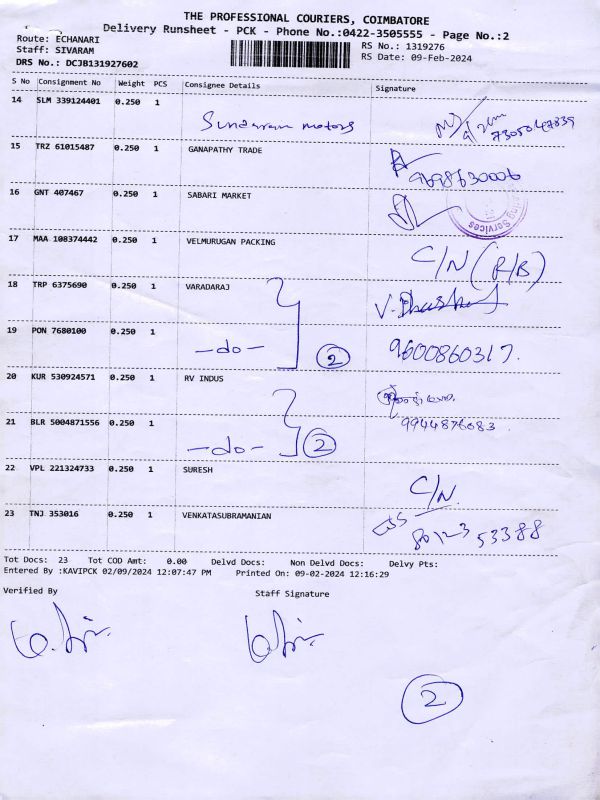 THE PROFESSIONAL COURIERS, COIMBATORE
Delivery Runsheet - PCK - Phone No.:0422-3505555 - Page No.:2
Route: ECHANARI
Staff: SIVARAM
DRS No.: DCJB131927602
RS No.: 1319276
RS Date: 09-Feb-2024
S No Consignment No Weight PCS Consignee Details Signature
14 SLM 339124401 0.250 1 Sundaram motors
15 TRZ 61015487 0.250 1 GANAPATHY TRADE 9698630006
16 GNT 407467 0.250 1 SABARI MARKET
17 MAA 108374442 0.250 1 VELMURUGAN PACKING C/N (R/B)
18 TRP 6375690 0.250 1 VARADARAJ
19 PON 7680100 0.250 1 -do- 2 9600860317.
20 KUR 530924571 0.250 1 RV INDUS
21 BLR 5004871556 0.250 1 -do- 2 9944876083.
22 VPL 221324733 0.250 1 SURESH C/N.
23 TNJ 353016 0.250 1 VENKATASUBRAMANIAN 80123 53388
Tot Docs: 23 Tot COD Amt: 0.00 Delvd Docs: Non Delvd Docs: Delvy Pts:
Entered By :KAVIPCK 02/09/2024 12:07:47 PM Printed On: 09-02-2024 12:16:29
Verified By Staff Signature
2